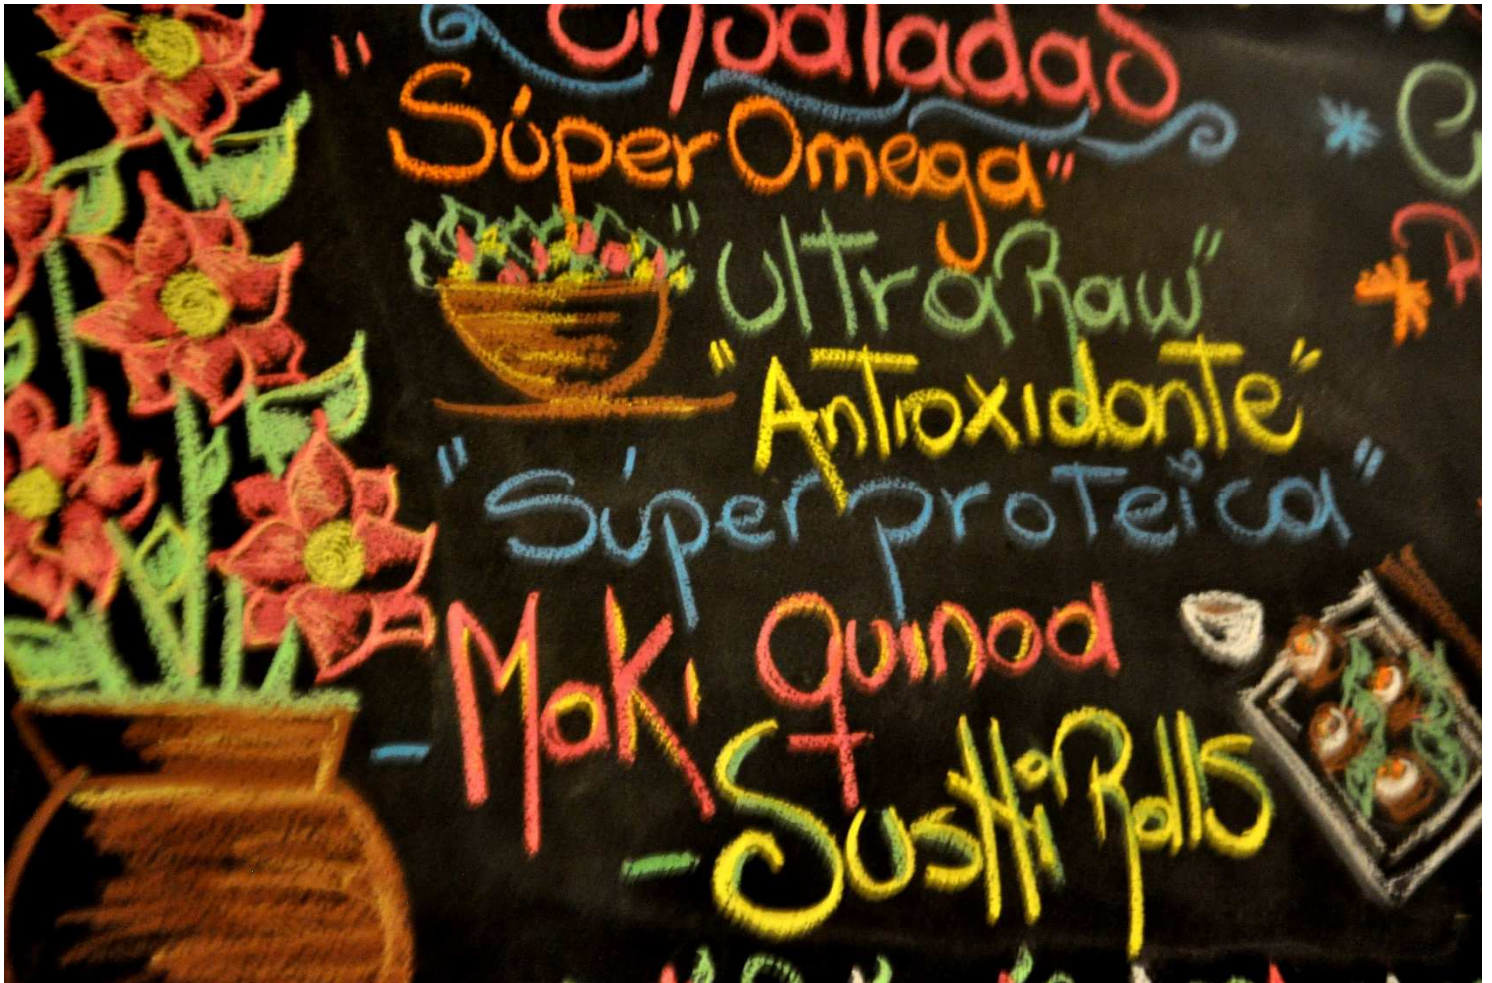 Ensaladas
"Súper Omega"
"Ultra Raw"
"Antioxidante"
"Súper proteica"
- Maki Quinoa
- Sushi Rolls